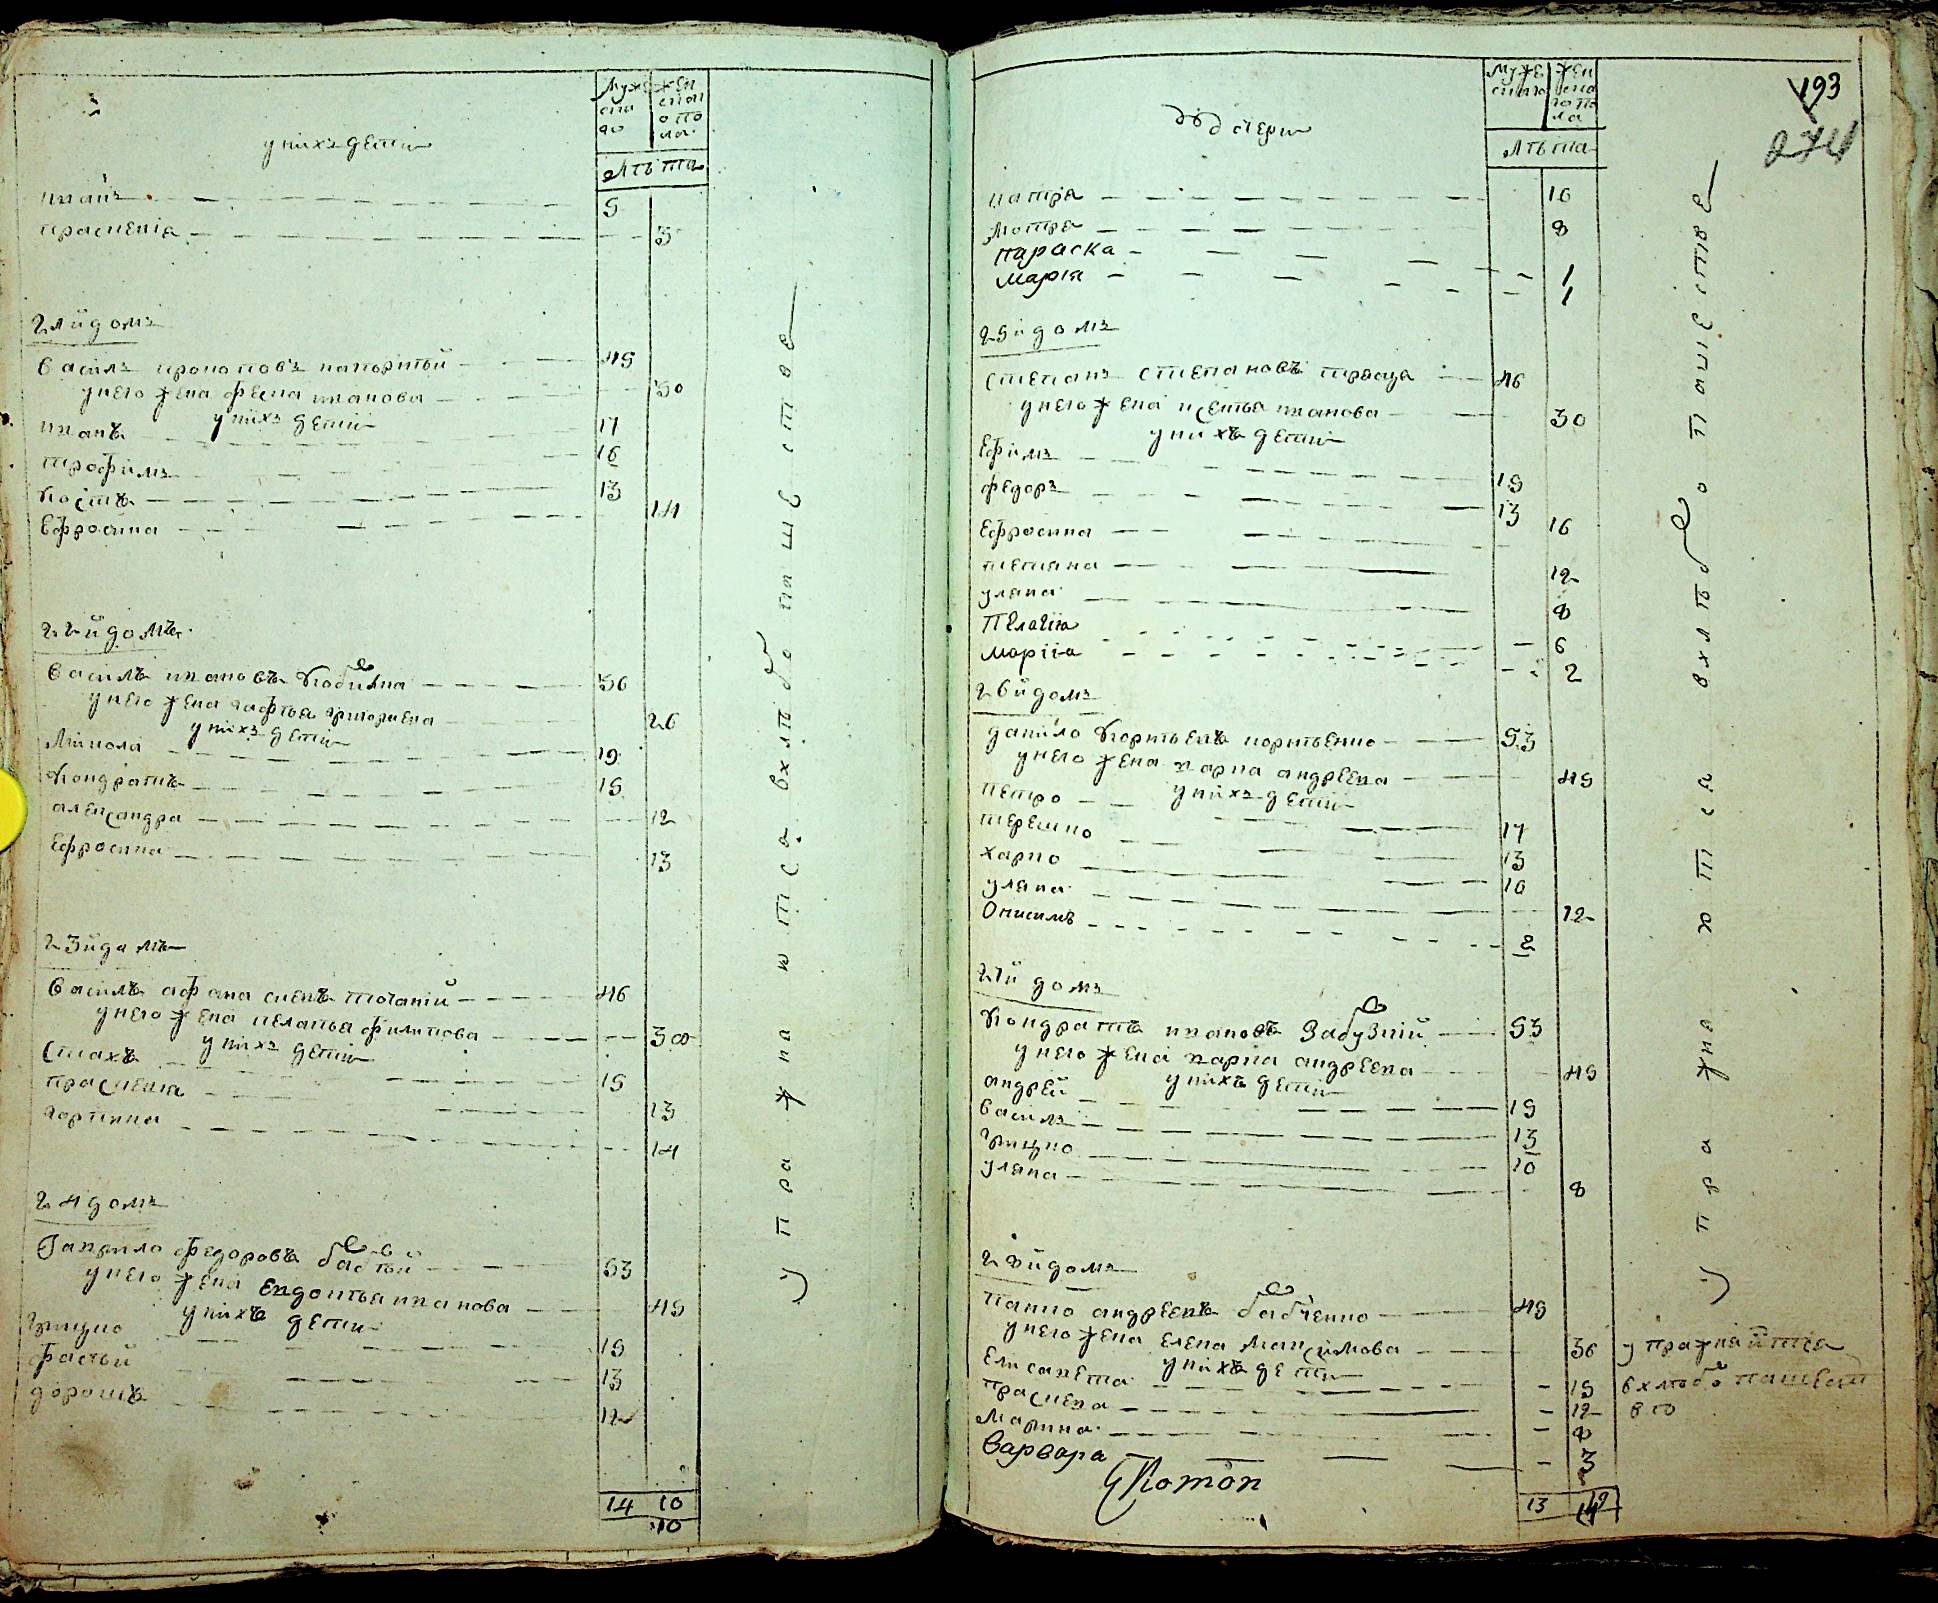 муже
ска
го
жен
скаг
о по
ла
лѣта
у нихъ дети
иванъ 5
праскевіа 3
21й домъ
василъ прокоповъ 45
у него жена феска иванова 30
у нихъ детіи
иванъ 17
трофимъ 16
костъ 13
ефросина 14
22й домъ
василъ ивановъ кобилка 36
у него жена гафья григориева 26
у нихъ детіи
микола 19
кондратъ 15
александра 12
ефросина 13
23й домъ
василъ афанасиевъ 46
у него жена пелагья филипова 30
у нихъ детіи
стахъ 15
праскевіа 13
горпина 14
24 домъ
гаврило федоровъ бабій 53
у него жена евдокья иванова 45
у нихъ дети
грицко 15
фастъй 13
дорошъ 12
14 10
10
упражняютса в хлѣбопашестве
193
274
муже
скаго
жен
ска
го по
ла
лѣта
дщери
мотра 8
параска 1
марія 1
25й домъ
степанъ степановъ 46
у него жена ксенья иванова 30
у нихъ детіи
ефимъ 15
федоръ 13
ефросина 16
татяна 12
уляна 8
пелагіа 6
маріа 2
26й домъ
данило корнѣевъ корнѣенко 53
у него жена варка андреева 45
у нихъ детіи
петро 17
терешко 13
харко 10
уляна 12
онисимъ 2
27й домъ
кондратъ ивановъ забузній 53
у него жена варка андреева 45
у нихъ детіи
андрей 15
василъ 13
грицко 10
уляна 8
28й домъ
панко андреевъ бабченко 45
у него жена елена максимова 36
у нихъ дети
елисавета 15
праскева 12
марина 8
варвара 3
13
упражняютса в хлѣбопашестве
упражняютса
в хлѣбопашест
во